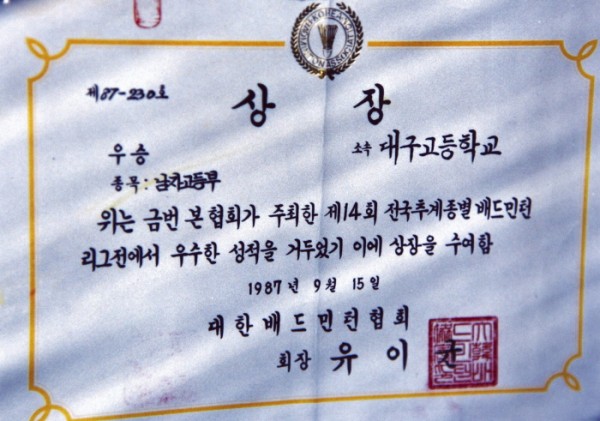 제87-230호
상 장
우승
소속 대구고등학교
종목: 남자고등부
위는 금번 본 협회가 주최한 제14회 전국추계종별배드민턴
리그전에서 우수한 성적을 거두었기 이에 상장을 수여함
1987년 9월 15일
대한배드민턴협회
회장 유이